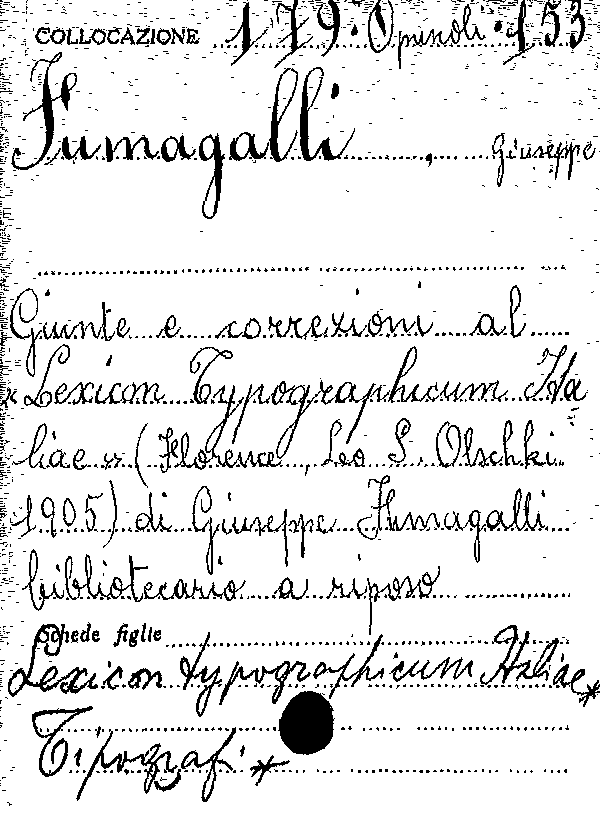 COLLOCAZIONE 179. Opuscoli. 153
Fumagalli, Giuseppe
Giunte e correzioni al
« Lexicon Typographicum Ita
liae » (Florence, Leo S. Olschki
1905) di Giuseppe Fumagalli
bibliotecario a riposo
Schede figlie
Lexicon typographicum Italiae*
Tipografi *